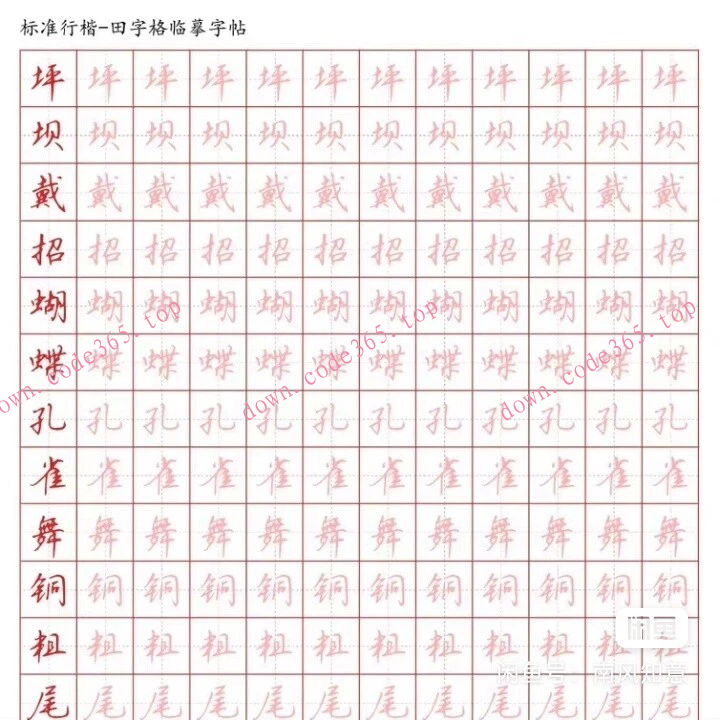 标准行楷-田字格临摹字帖
坪坪坪坪坪坪坪坪坪坪坪坪
坝坝坝坝坝坝坝坝坝坝坝坝
戴戴戴戴戴戴戴戴戴戴戴戴
招招招招招招招招招招招招
蝴蝴蝴蝴蝴蝴蝴蝴蝴蝴蝴蝴
蝶蝶蝶蝶蝶蝶蝶蝶蝶蝶蝶蝶
down.code365.top down.code365.top down.code365.top
孔孔孔孔孔孔孔孔孔孔孔孔
雀雀雀雀雀雀雀雀雀雀雀雀
舞舞舞舞舞舞舞舞舞舞舞舞
铜铜铜铜铜铜铜铜铜铜铜铜
闲鱼
粗粗粗粗粗粗粗粗粗粗粗粗
闲鱼号：南风知意
尾尾尾尾尾尾尾尾尾尾尾尾